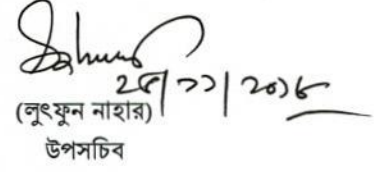 ২৫/১১/২০১৮
(লুৎফুন নাহার)
উপসচিব